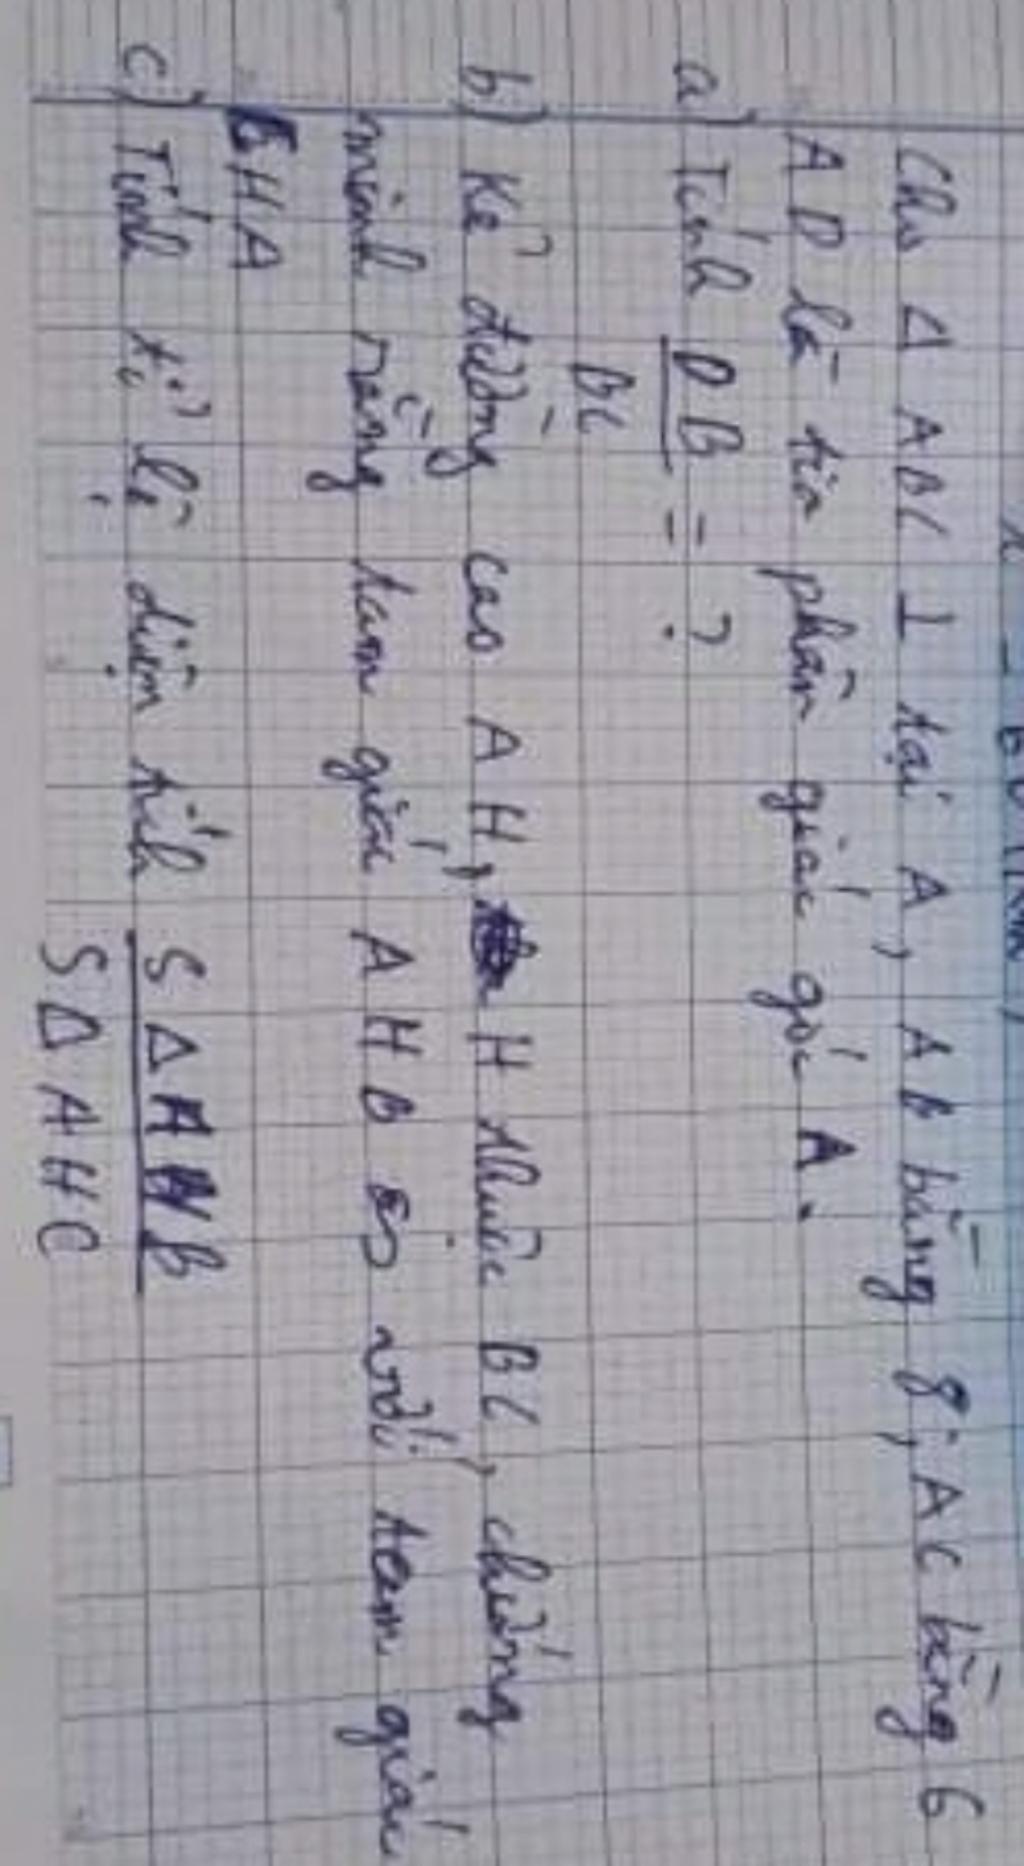 Cho Δ ABC ⊥ tại A, AB bằng 8; AC bằng 6
AD là tia phân giác góc A.
a) Tính DB = ?
DC
b) Kẻ đường cao AH, H thuộc BC, chứng
minh rằng tam giác AHB ∽ với tam giác
CHA
c) Tính tỉ lệ diện tích SΔAHB
SΔAHC